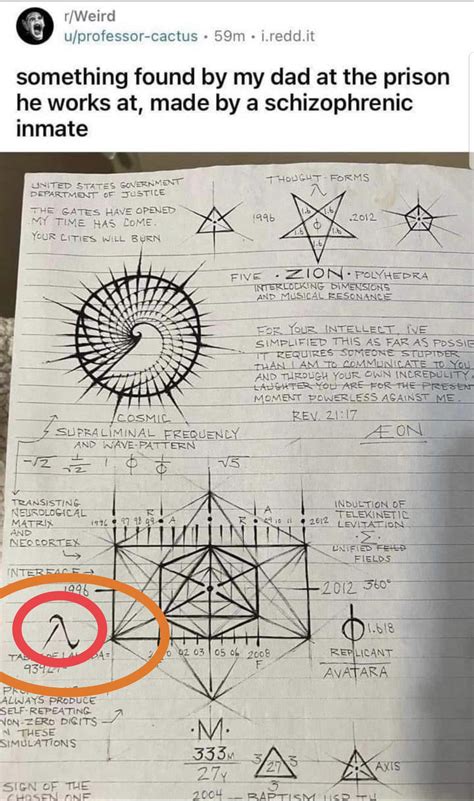 r/Weird
u/professor-cactus · 59m · i.redd.it
something found by my dad at the prison
he works at, made by a schizophrenic
inmate
UNITED STATES GOVERNMENT
DEPARTMENT OF JUSTICE
THE GATES HAVE OPENED
MY TIME HAS COME.
YOUR CITIES WILL BURN
THOUGHT-FORMS
λ
1996
1.6 1.6
1.6 ϕ 1.6
1.6
.2012
FIVE · ZION · POLYHEDRA
INTERLOCKING DIMENSIONS
AND MUSICAL RESONANCE
FOR YOUR INTELLECT, I'VE
SIMPLIFIED THIS AS FAR AS POSSIB
IT REQUIRES SOMEONE STUPIDER
THAN I AM TO COMMUNICATE TO YOU
AND THROUGH YOUR OWN INCREDULITY,
LAUGHTER YOU ARE FOR THE PRESENT
MOMENT POWERLESS AGAINST ME.
REV. 21:17
ÆON
COSMIC
SUPRALIMINAL FREQUENCY
AND WAVE-PATTERN
-√2 1/√2 1 ϕ 1/ϕ √5
TRANSISTING
NEUROLOGICAL
MATRIX
AND
NEOCORTEX
INTERFACE →
R A R A
1996 97 98 09 A R 09 10 11 2012
INDUCTION OF
TELEKINETIC
LEVITATION
·Σ·
UNIFIED FIELD
FIELDS
1996
2012 360°
λ
ϕ 1.618
02 03 05 06 2008
F
REPLICANT
AVATARA
ALWAYS PRODUCE
SELF-REPEATING
NON-ZERO DIGITS
IN THESE
SIMULATIONS
·M·
333M
27Y
3 3
27
3
AXIS
SIGN OF THE
CHOSEN ONE
2004 — BAPTISM